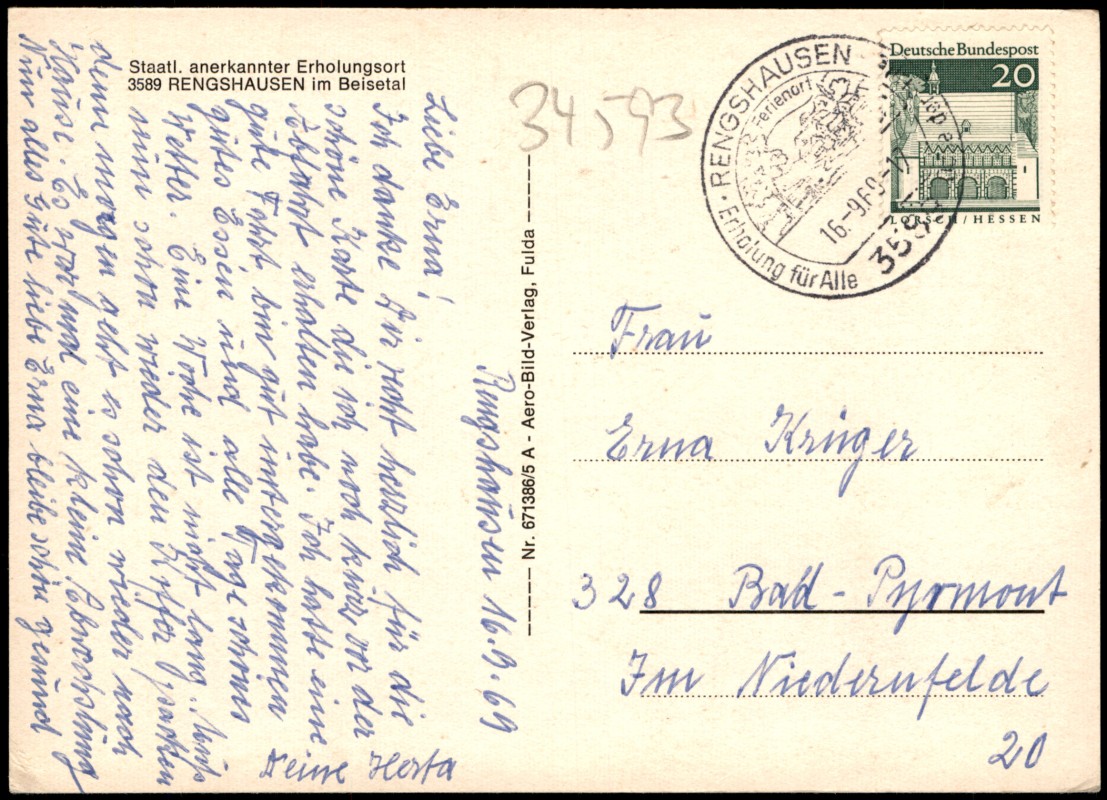 Staatl. anerkannter Erholungsort
3589 RENGSHAUSEN im Beisetal
34,593
Rengshausen 16.9.69
Liebe Erna!
Ich danke Dir recht herzlich für die
schöne Karte die ich noch kurz vor der
Abfahrt erhalten habe. Ich hatte eine
gute Fahrt bin gut untergekommen
gutes Essen und alle Tage schönes
Wetter. Eine Woche ist nicht lang. Muß
nun schon wieder den Koffer packen
denn morgen geht es schon wieder nach
Hause. Es war mal eine kleine Abwechslung
Nun alles Gute liebe Erna bleibe schön gesund
Deine Herta
Nr. 671386/5 A - Aero-Bild-Verlag, Fulda
RENGSHAUSEN
Ferienort
16.-9.69-17
3589
Erholung für Alle
Deutsche Bundespost
20
LORSCH/HESSEN
Frau
Erna Krüger
328 Bad-Pyrmont
Im Niedernfelde
20